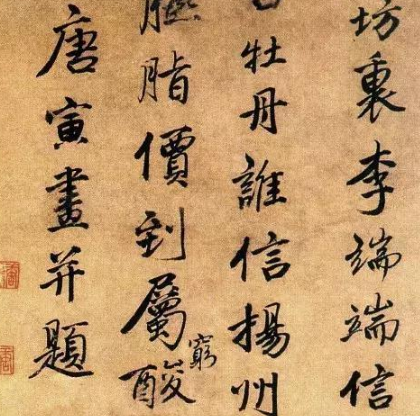 坊裏李端端信
牡丹誰信揚州
臙脂價到屬窮酸
唐寅畫并題